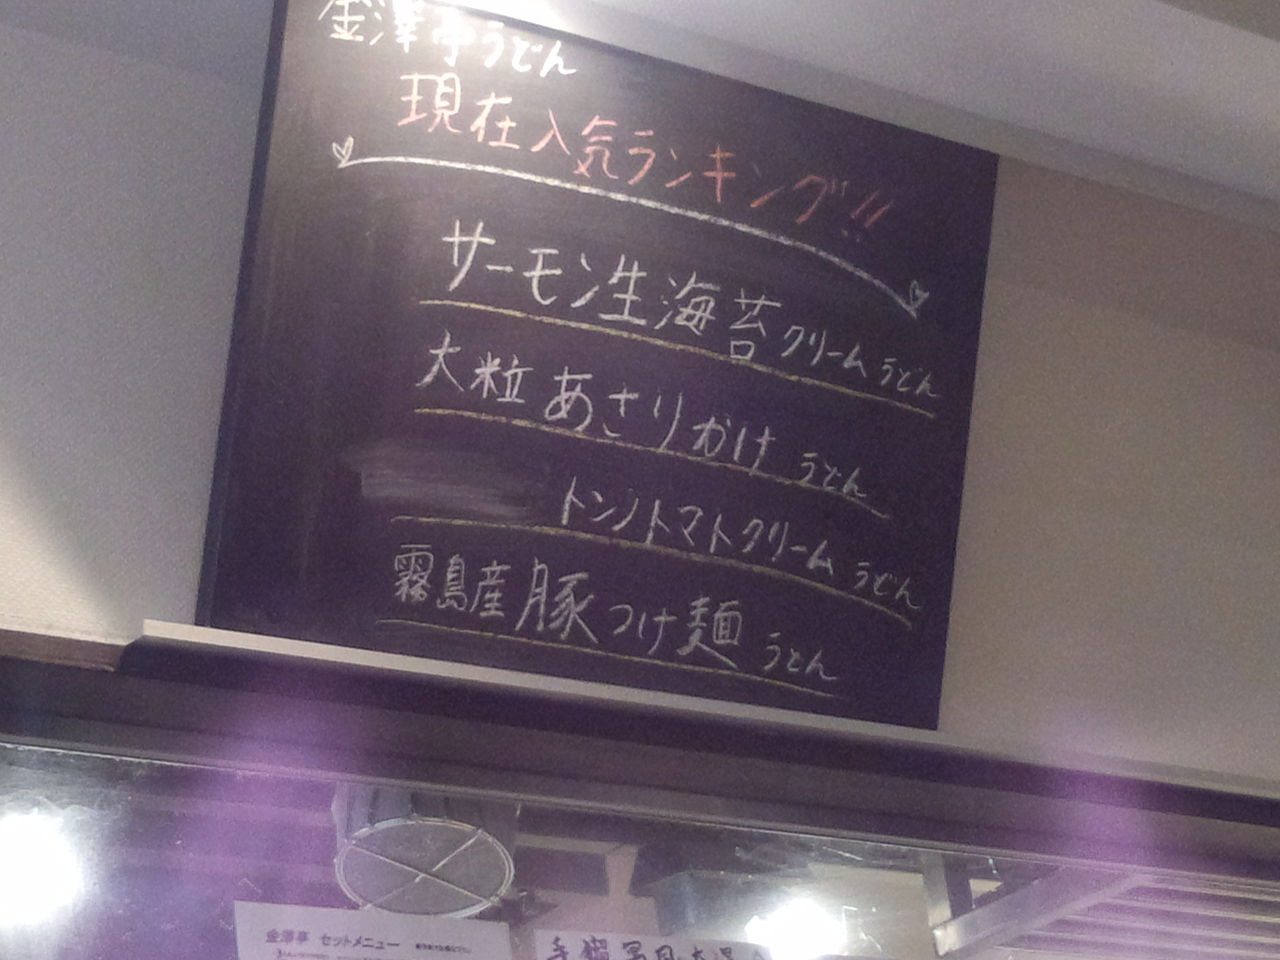 金澤亭うどん
現在人気ランキング!!
サーモン生海苔クリームうどん
大粒あさりかけうどん
トンノトマトクリームうどん
霧島産豚つけ麺うどん
金澤亭 セットメニュー